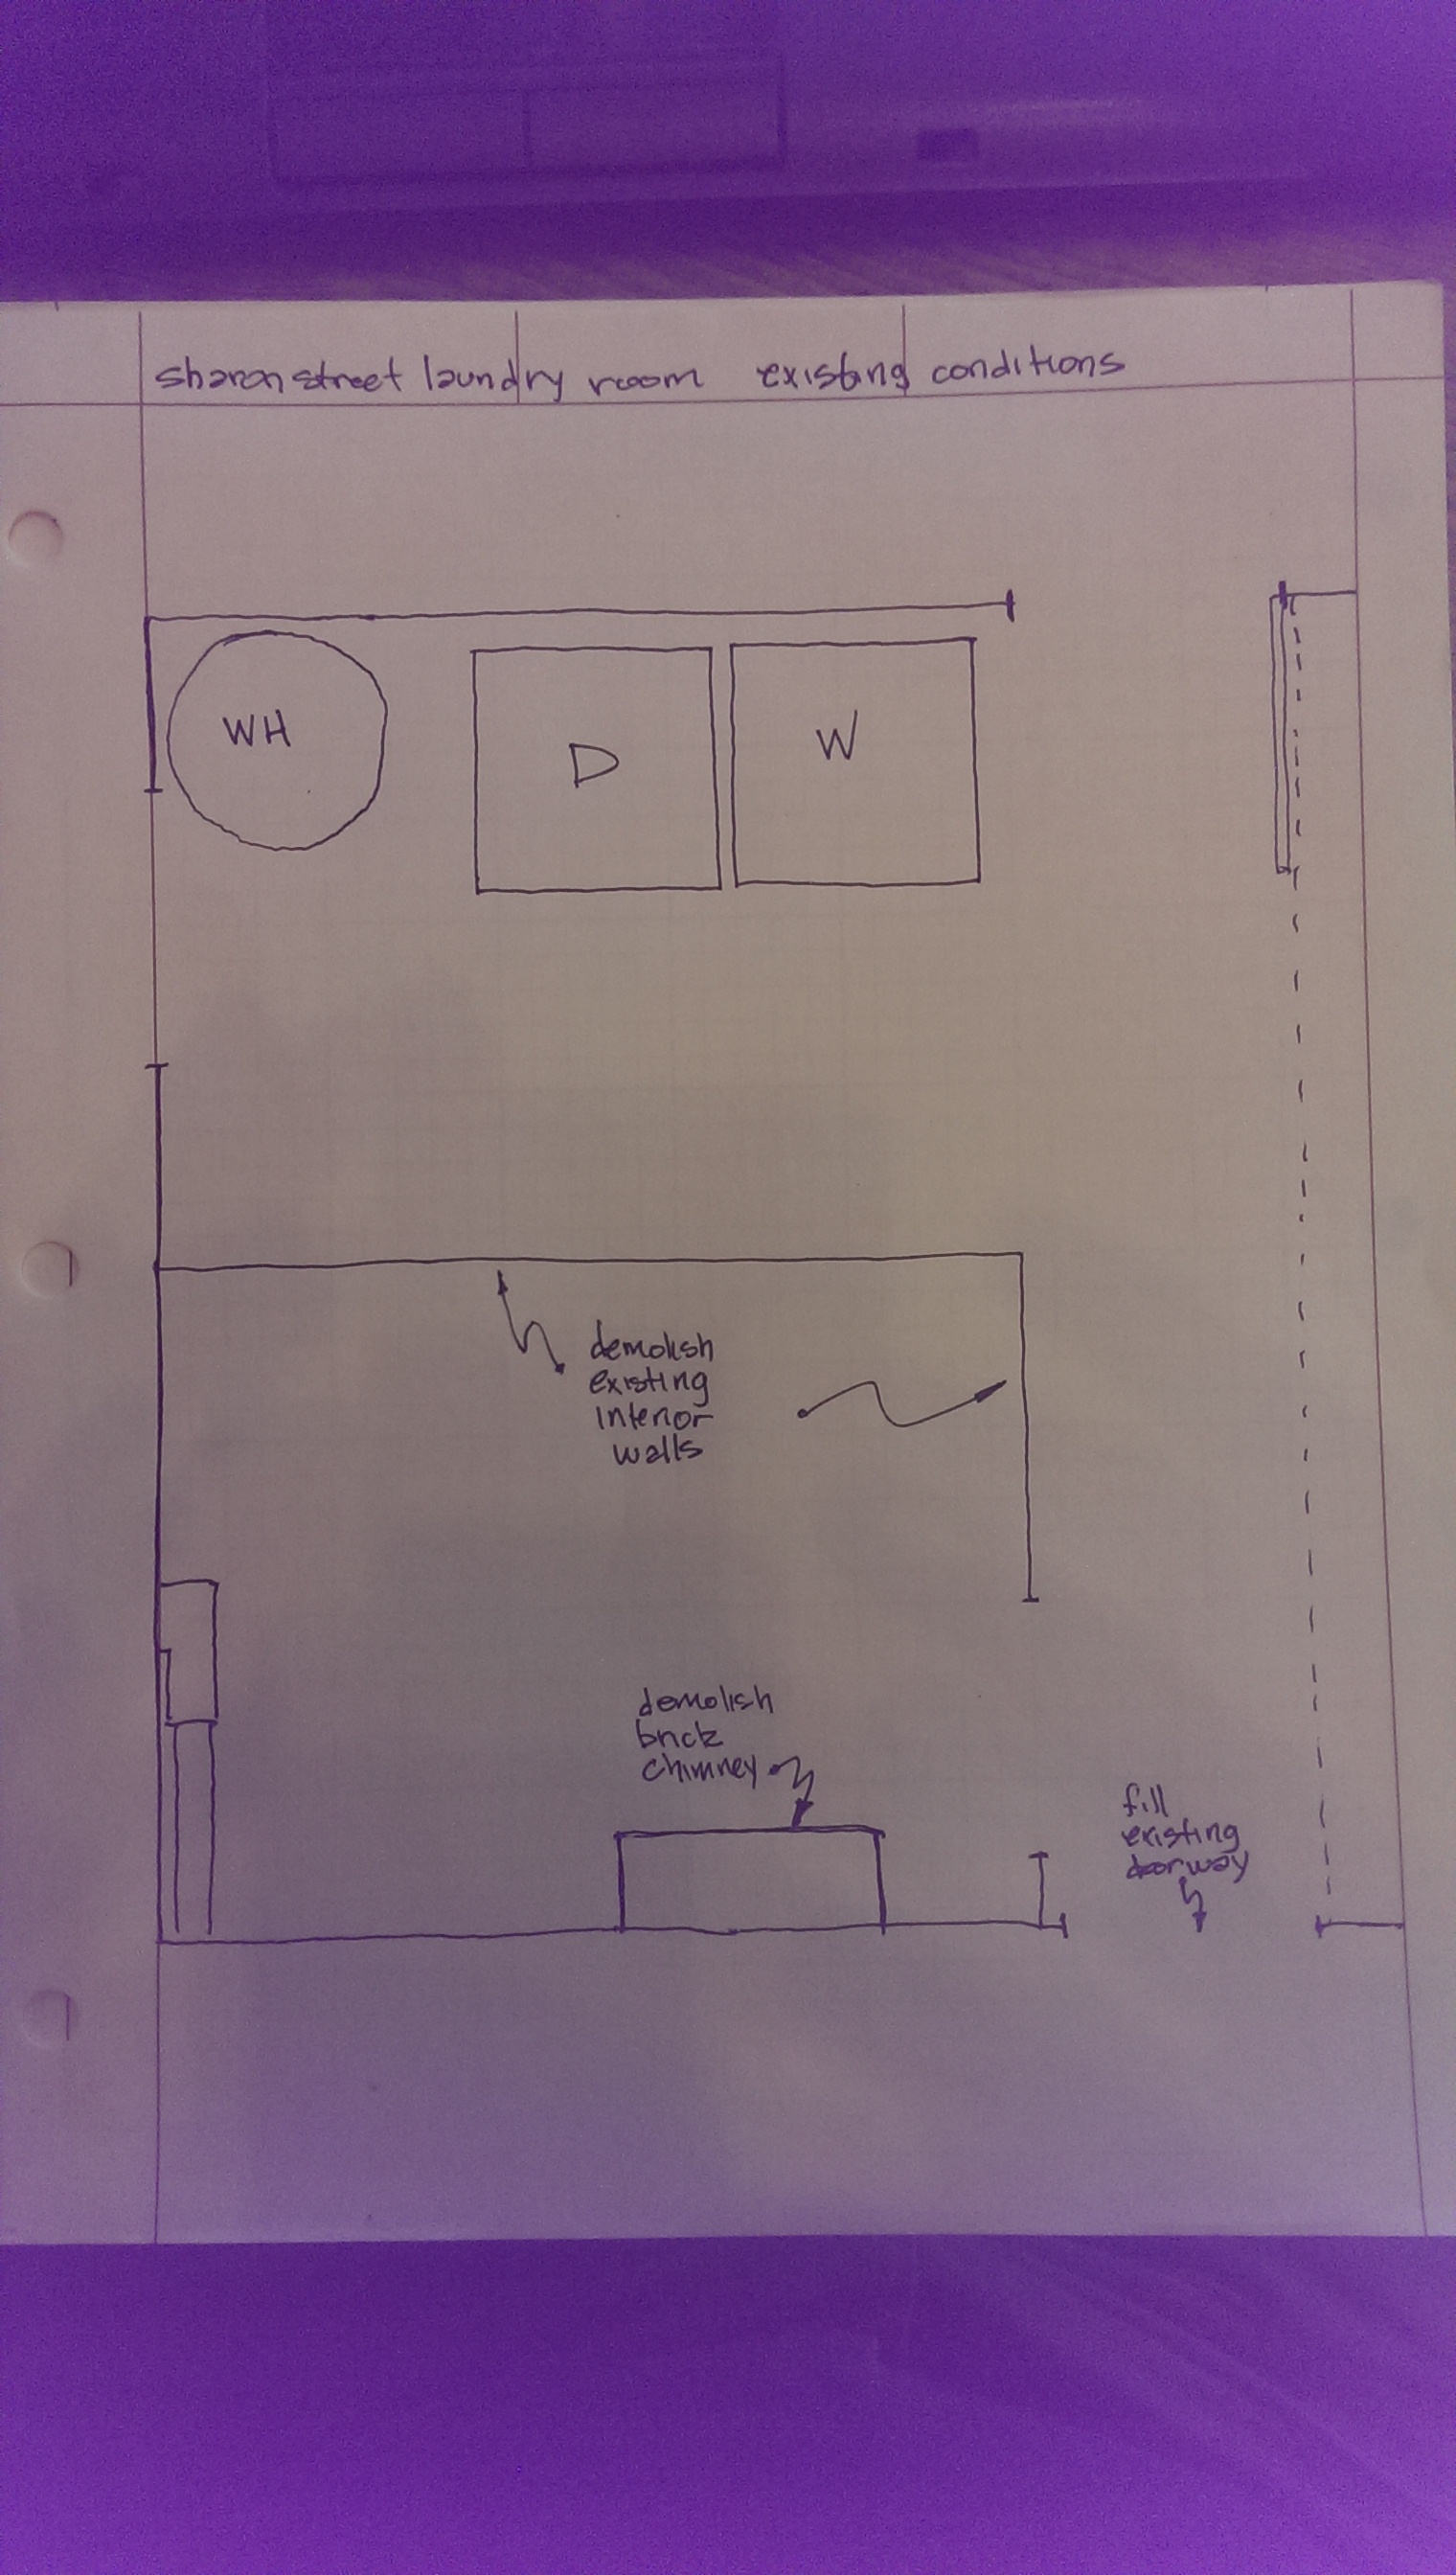 sharon street laundry room existing conditions
WH
D
W
demolish
existing
interior
walls
demolish
brick
chimney
fill
existing
doorway